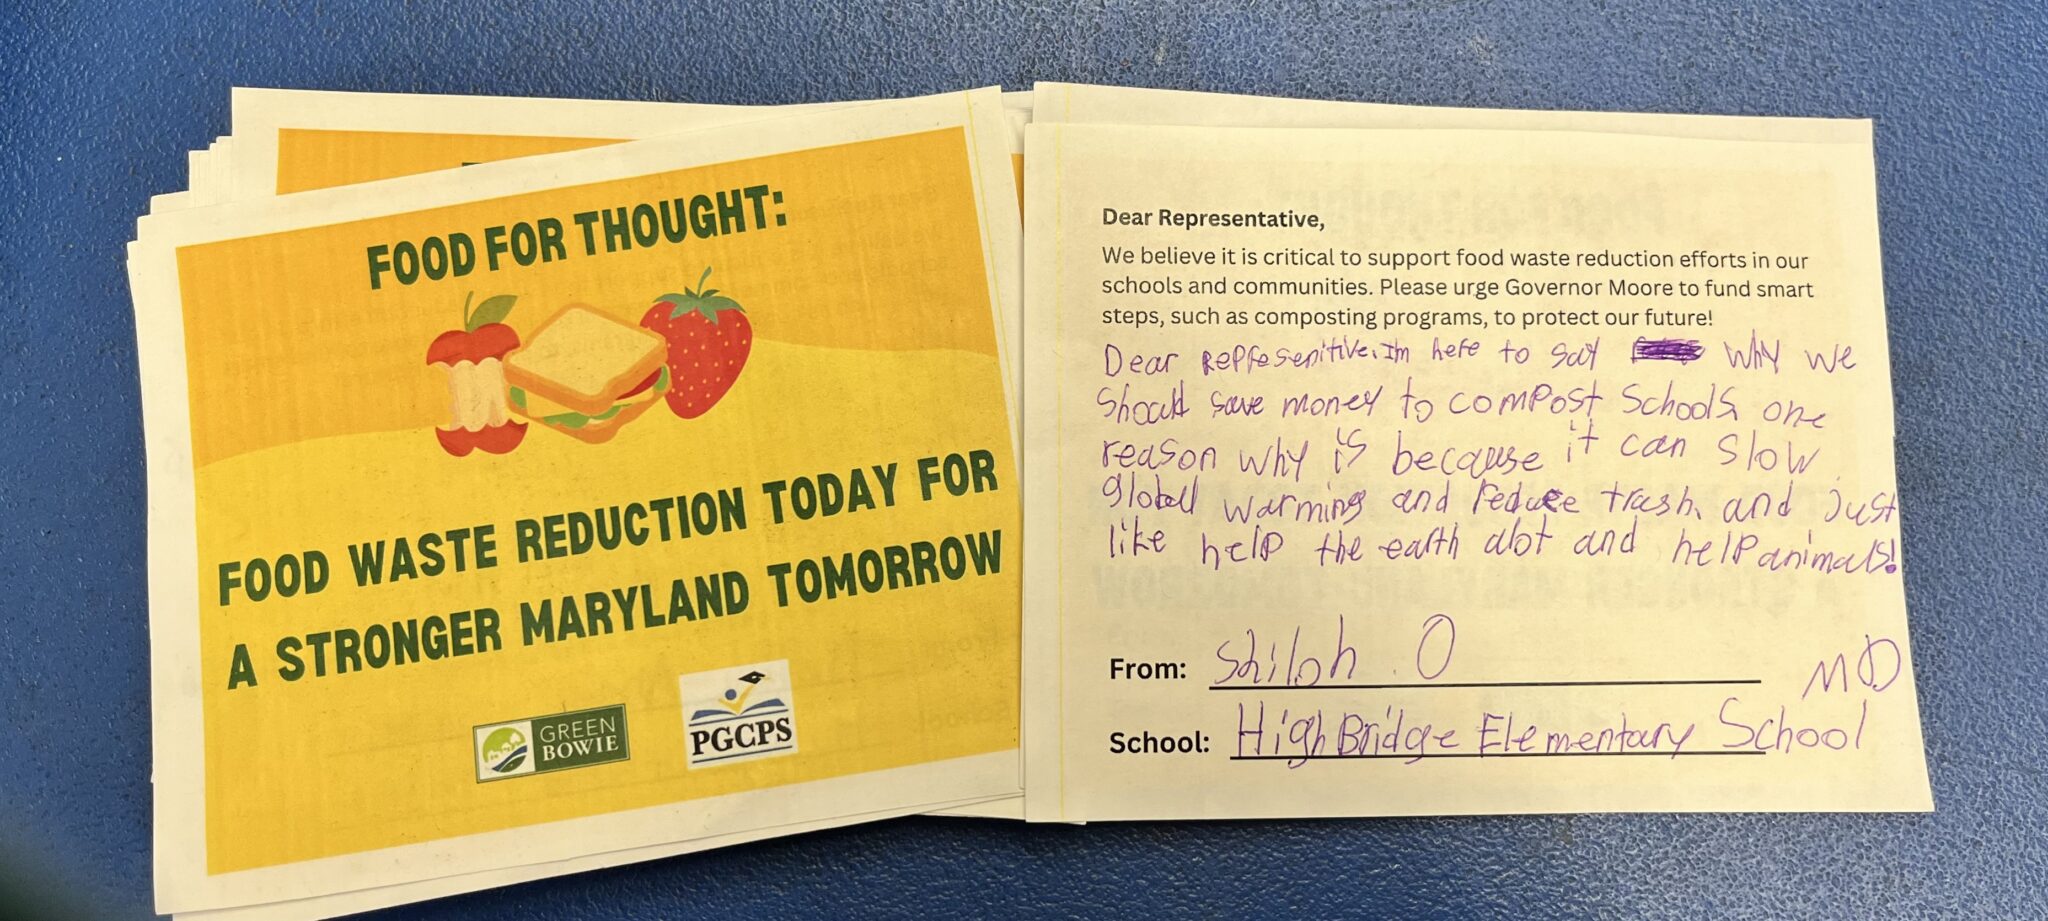 FOOD FOR THOUGHT:
FOOD WASTE REDUCTION TODAY FOR
A STRONGER MARYLAND TOMORROW
GREEN
BOWIE
PGCPS
Dear Representative,
We believe it is critical to support food waste reduction efforts in our
schools and communities. Please urge Governor Moore to fund smart
steps, such as composting programs, to protect our future!
Dear Represenitive, Im here to say why we
should save money to compost schools one
reason why is because it can slow
global warming and reduce trash, and just
like help the earth alot and help animals!
From: Shiloh . O
MD
School: HighBridge Elementary School